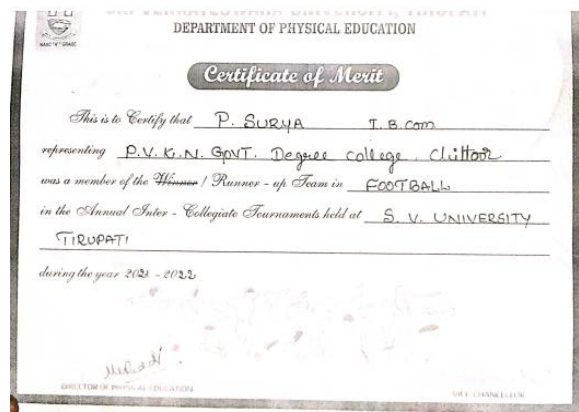 SRI VENKATESWARA UNIVERSITY, TIRUPATI
DEPARTMENT OF PHYSICAL EDUCATION
NAAC "A+" GRADE
Certificate of Merit
This is to Certify that P. SURYA I. B. Com
representing P.V.K.N. GOVT. Degree college. Chittoor
was a member of the Winner / Runner - up Team in FOOTBALL
in the Annual Inter - Collegiate Tournaments held at S. V. UNIVERSITY
TIRUPATI
during the year 2021 - 2022
DIRECTOR OF PHYSICAL EDUCATION
VICE - CHANCELLOR